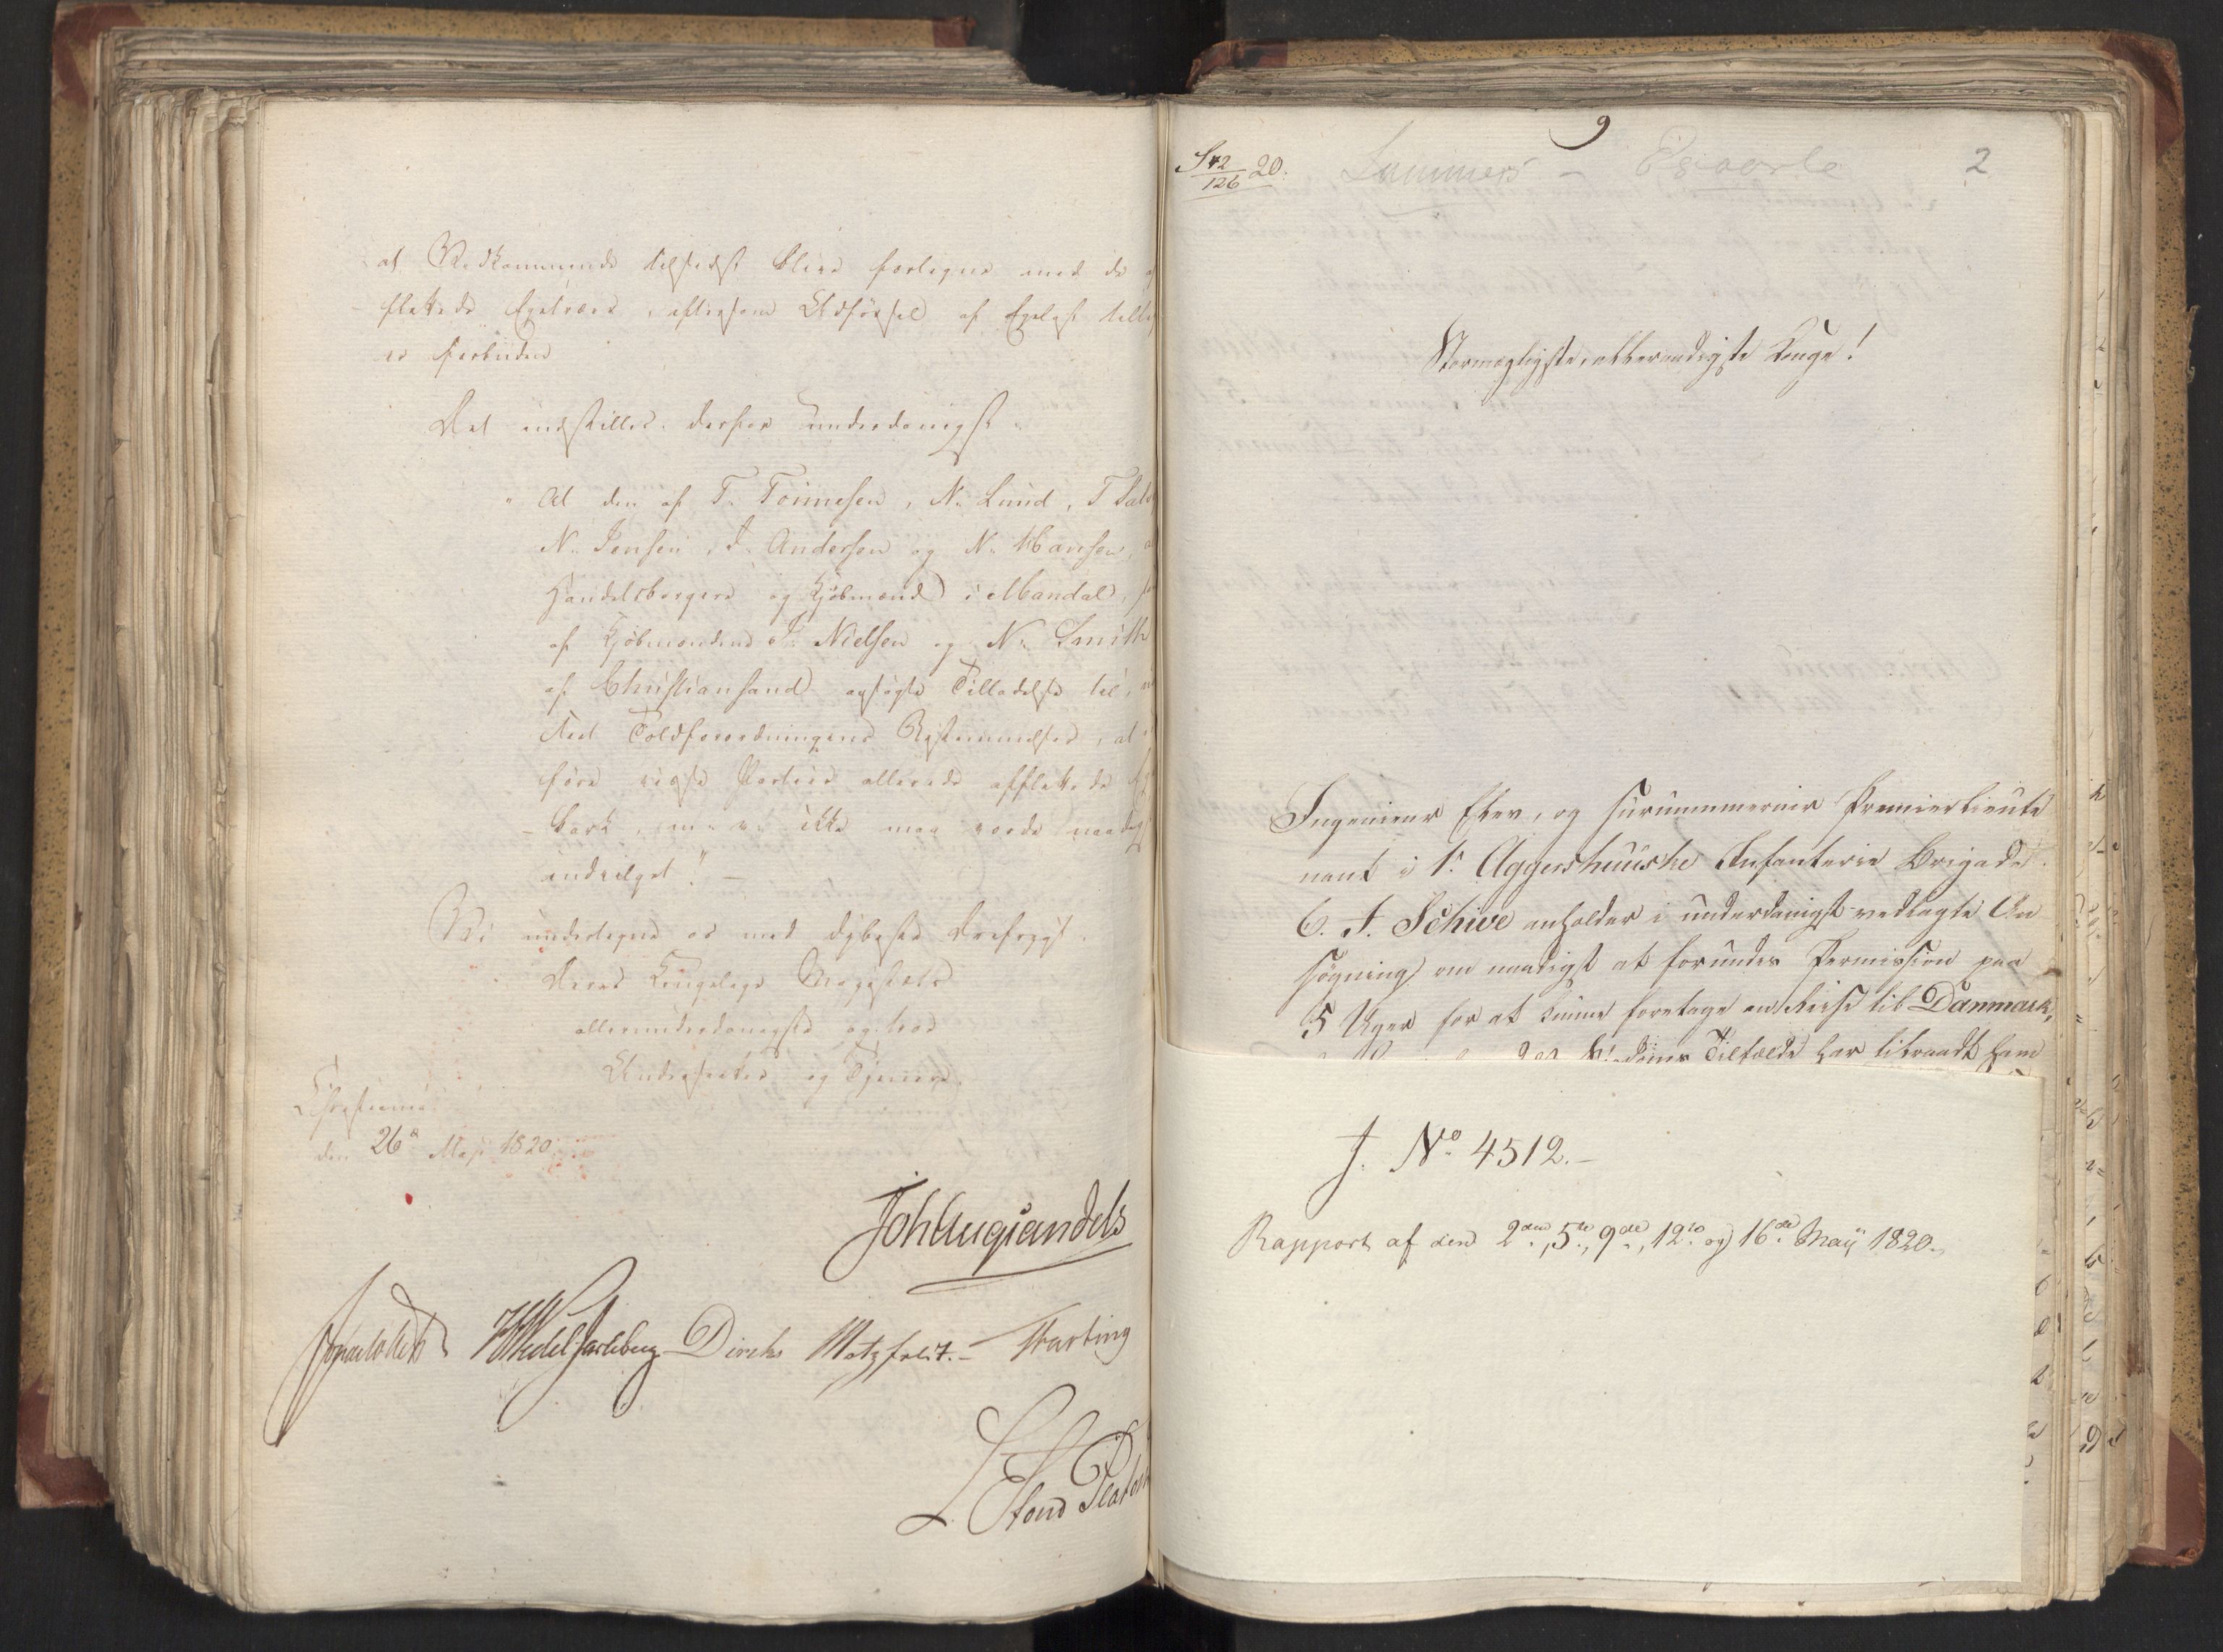 at Vedkommende tilsidst blive forlegne med de
flakte Egetræer, eftersom Udførsel af Egelast
er forbuden
Det indstilles derfor underdanigst:
"At den af T. Tönnesen, N. Lund, T.
N. Jensen, J. Andersen og N. Hansen,
Handelsborgere og Kjøbmænd i Mandal,
af Kjøbmændene J. Nielsen og N. Smith
af Christiansand ansøgte Tilladelse til,
Toldforordningens Bestemmelser, at
føre visse Partier allerede afflakte
bark, ikke maa vorde naadigst
indvilget." —
Vi undertegne os med dybeste Ærefrygt.
Deres Kongelige Majestæts
allerunderdanigste og troe
Undersaatter og Tjenere.
Christiania
den 26de Maji 1820
JohAugSandels
Jonas Collett HWedel Jarlsberg Diriks Motzfeldt. — Krebting
L. Stoud Platou
9
S 42/126 20.
2
Stormægtigste, allernaadigste Konge!
Ingenieur Elev, og surnummerair Premierlieute
nant i 1ste Aggershuusske Infanterie Brigade
C. J. Schive anholder i underdanigst vedlagte An
søgning om naadigst at forundes Permission paa
5 Uger for at kunne foretage en Reise til Danmark,
Tilfælde har tilraadt ham
J. No 4512. —
Rapport af den 2den, 5te, 9de, 12te og 16de Maÿ 1820.